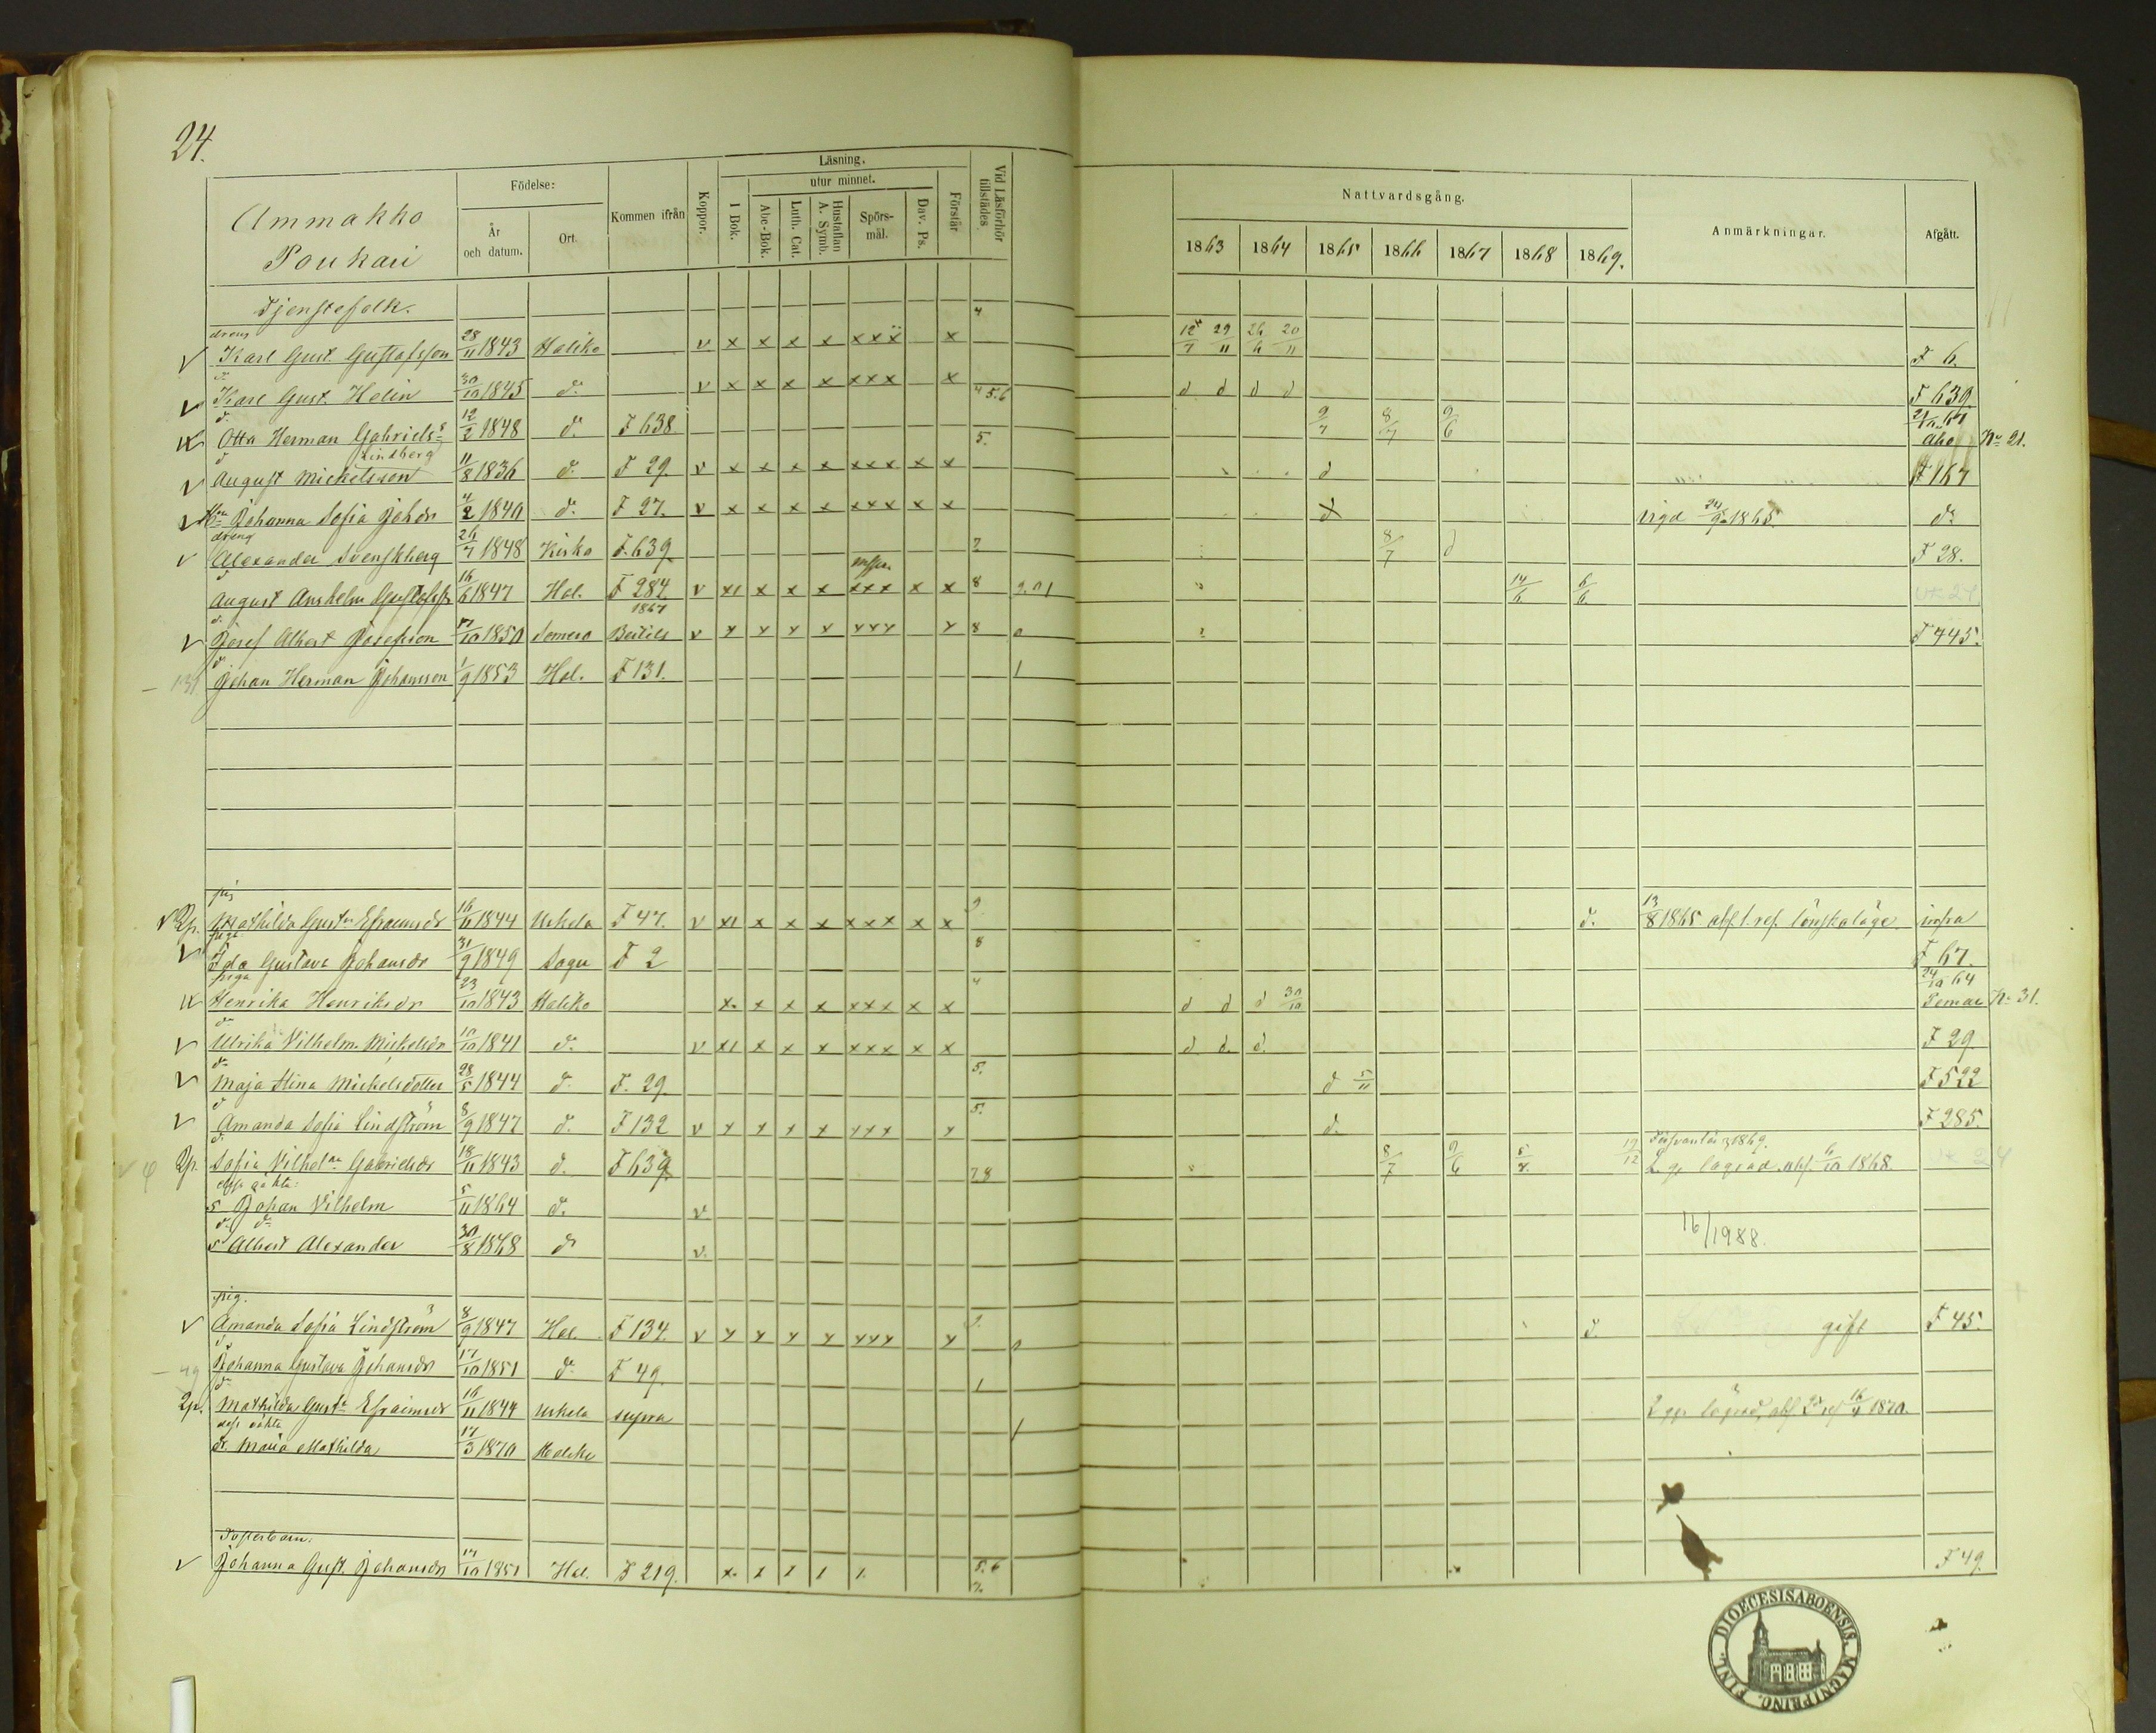 24.
Ammakko
Poukari
Födelse:
År och datum.
Ort.
Kommen ifrån
Koppor.
Läsning.
utur minnet.
I Bok.
Abc-Bok.
Luth. Cat.
Hustaflan A. Symb.
Spörs-mål.
Dav. Ps.
Förstår
Vid Läsförhör tillstädes
Nattvardsgång.
1863 1864 1865 1866 1867 1868 1869.
Anmärkningar.
Afgått.
Tjenstefolk. 4
dreng
v Karl Gust. Gustafsson 28/11 1843 Haliko v x x x x xxx x 12/7 29/11 26/6 20/11 F 6.
d:o
v Karl Gust. Helin 30/10 1845 d:o v x x x x xxx x 4 5.6 d d d d F 639
d:o
Otto Herman Gabriels: 12/2 1848 d:o F 638 5. 9/7 8/7 9/6 Åbo N:o 21.
d:o Lindberg
v August Mickelsson 11/8 1836 d:o F 29. v x x x x xxx x x d F 167
v Johanna Sofia Johdr 4/2 1840 d:o F 27. v x x x x xxx x x d vigd 24/9 1865. d:o
dreng
v Alexander Svenskberg 26/7 1848 Kisko F. 639 7 8/7 d F 28.
d:o
August Anshelm Gustafss 16/6 1847 Hal. F 284 v x1 x x x xxx x x 8 9.01 14/6 6/6
1867
d:o
v Josef Albert Josefsson 17/10 1850 Somero Bertils v x x x x xxx x 8 0 F 745.
d:o
131 Johan Herman Johansson 1/9 1853 Hal. F 131. 1
pig
v 2p. Mathilda Gust:a Efraimsdr 16/11 1844 Uskela F 47. v x1 x x x xxx x x 9 d. 13/8 1865 abs. f. ref. lönskaläge infra
piga
v Ida Gustava Johansdr 31/9 1849 Sagu F 2 8 F 67.
piga
Henrika Henriksdr 23/10 1843 Haliko x. x x x xxx x x 4 d d d 30/10 24/10 64 Pemar N:o 31.
d:o
v Ulrika Vilhelm. Mickelsdr 10/10 1841 d:o v x1 x x x xxx x x d d. d. F 29
d:o
v Maja Stina Mickelsdotter 28/5 1844 d:o F. 29 5. d 5/11 F 522
d:o
v Amanda Sofia Lindström 8/9 1847 d. F 132 v x x x x xxx x 5. d. F 285.
d:o
2p. Sofia Vilhel:na Gabrielsdr 18/11 1843 d. F 639 7 8 8/7 9/6 5/7 19/12 2 g. lägrad. abs. 6/10 1868.
s Johan Vilhelm 5/11 1864 d. v
d:o d:o
s Albert Alexander 30/8 1868 d:o v. 16/1988.
pig.
v Amanda Sofia Lindström 8/9 1847 Hal. F 134. v x x x x xxx x 9. 0 d. gift F 45.
d:o
49 Johanna Gustava Johansdr 17/10 1851 d:o F 49. 1
d:o
2p. Mathilda Gust:a Efraimsdr 16/11 1844 Uskela supra 1 2 gr lägrad, abs. 2 ref 1870.
dr. Maria Mathilda 17/3 1870 Haliko
Fosterbarn.
v Johanna Gust. Johansdr 17/10 1851 Hal. F 219. x. x x 1 1. 5.6 7. F 49.
DIOECESIS ABOENSIS. MAGNI PRINC. FINL.